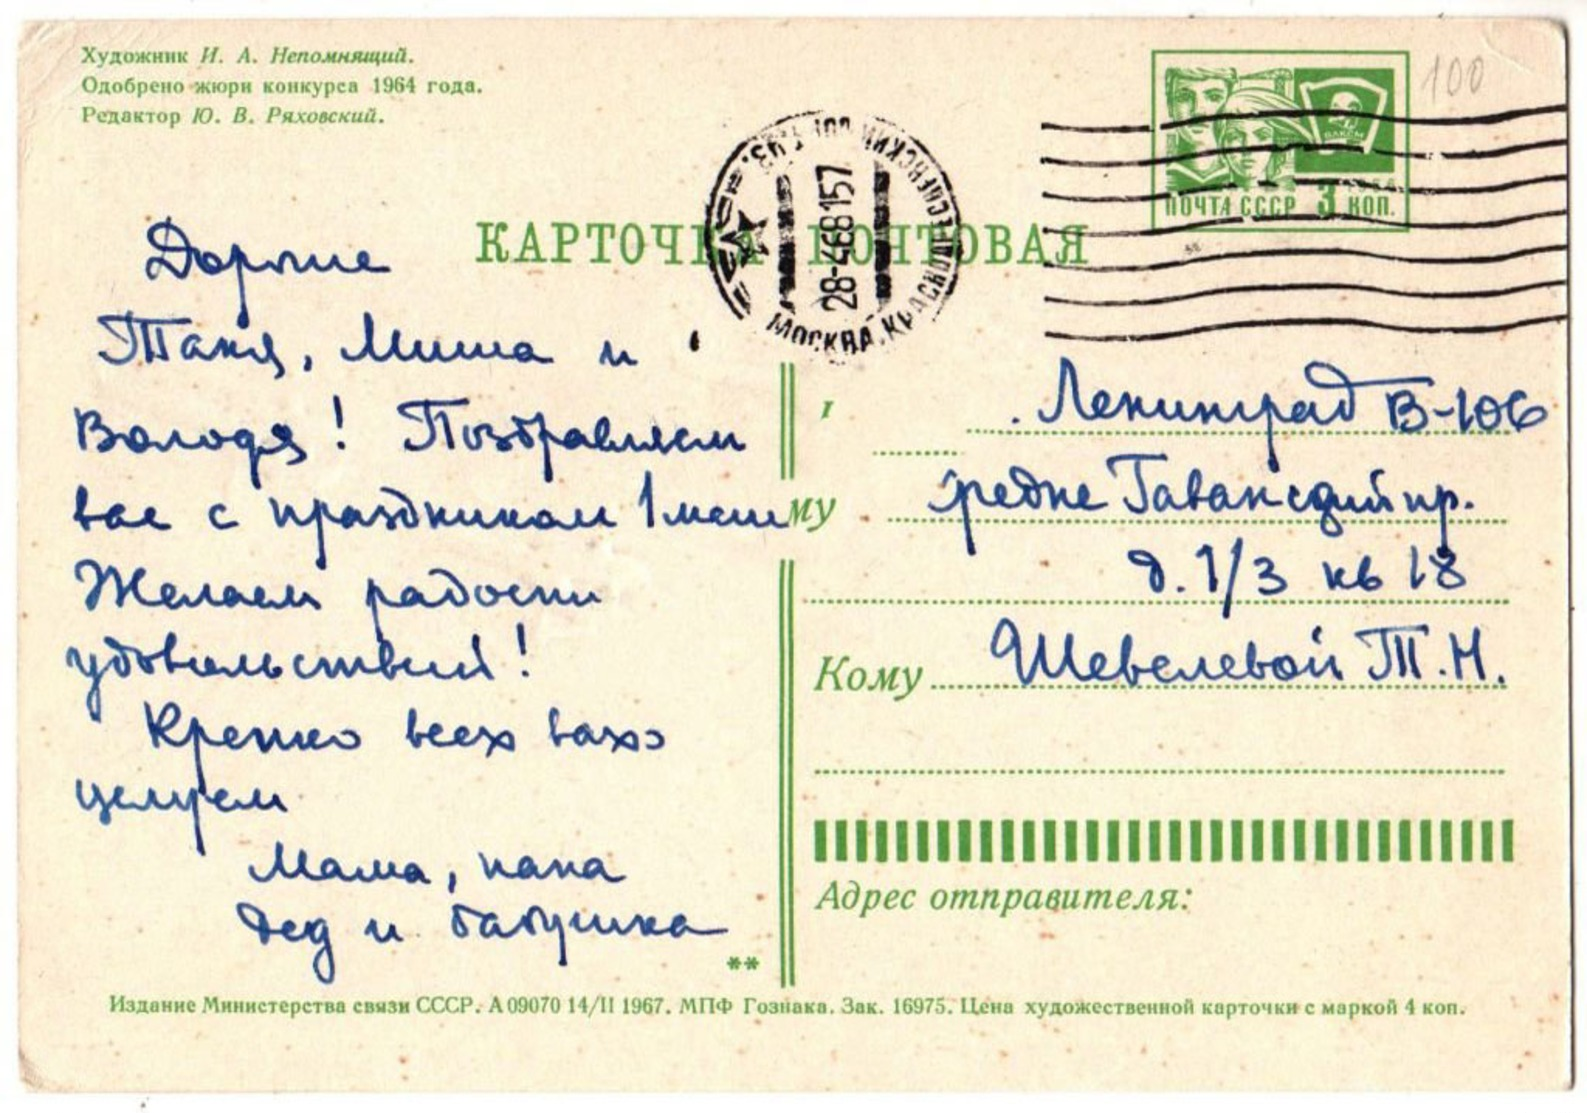 Художник И. А. Непомнящий.
Одобрено жюри конкурса 1964 года.
Редактор Ю. В. Ряховский.
100
ВЛКСМ
ПОЧТА СССР 3 КОП.
КАРТОЧКА ПОЧТОВАЯ
28-4 68 157
МОСКВА, КРАСНОПРЕСНЕНСКИЙ
Дорогие
Таня, Миша и
Володя! Поздравляем
вас с праздником 1 мая
Желаем радости
удовольствий!
Крепко всех вас
целуем
Мама, папа
дед и бабушка
**
му
Ленинград В-106
Средне Гаванский пр.
д. 1/3 кв 18
Кому Шевелевой Т.Н.
Адрес отправителя:
Издание Министерства связи СССР. А 09070 14/II 1967. МПФ Гознака. Зак. 16975. Цена художественной карточки с маркой 4 коп.